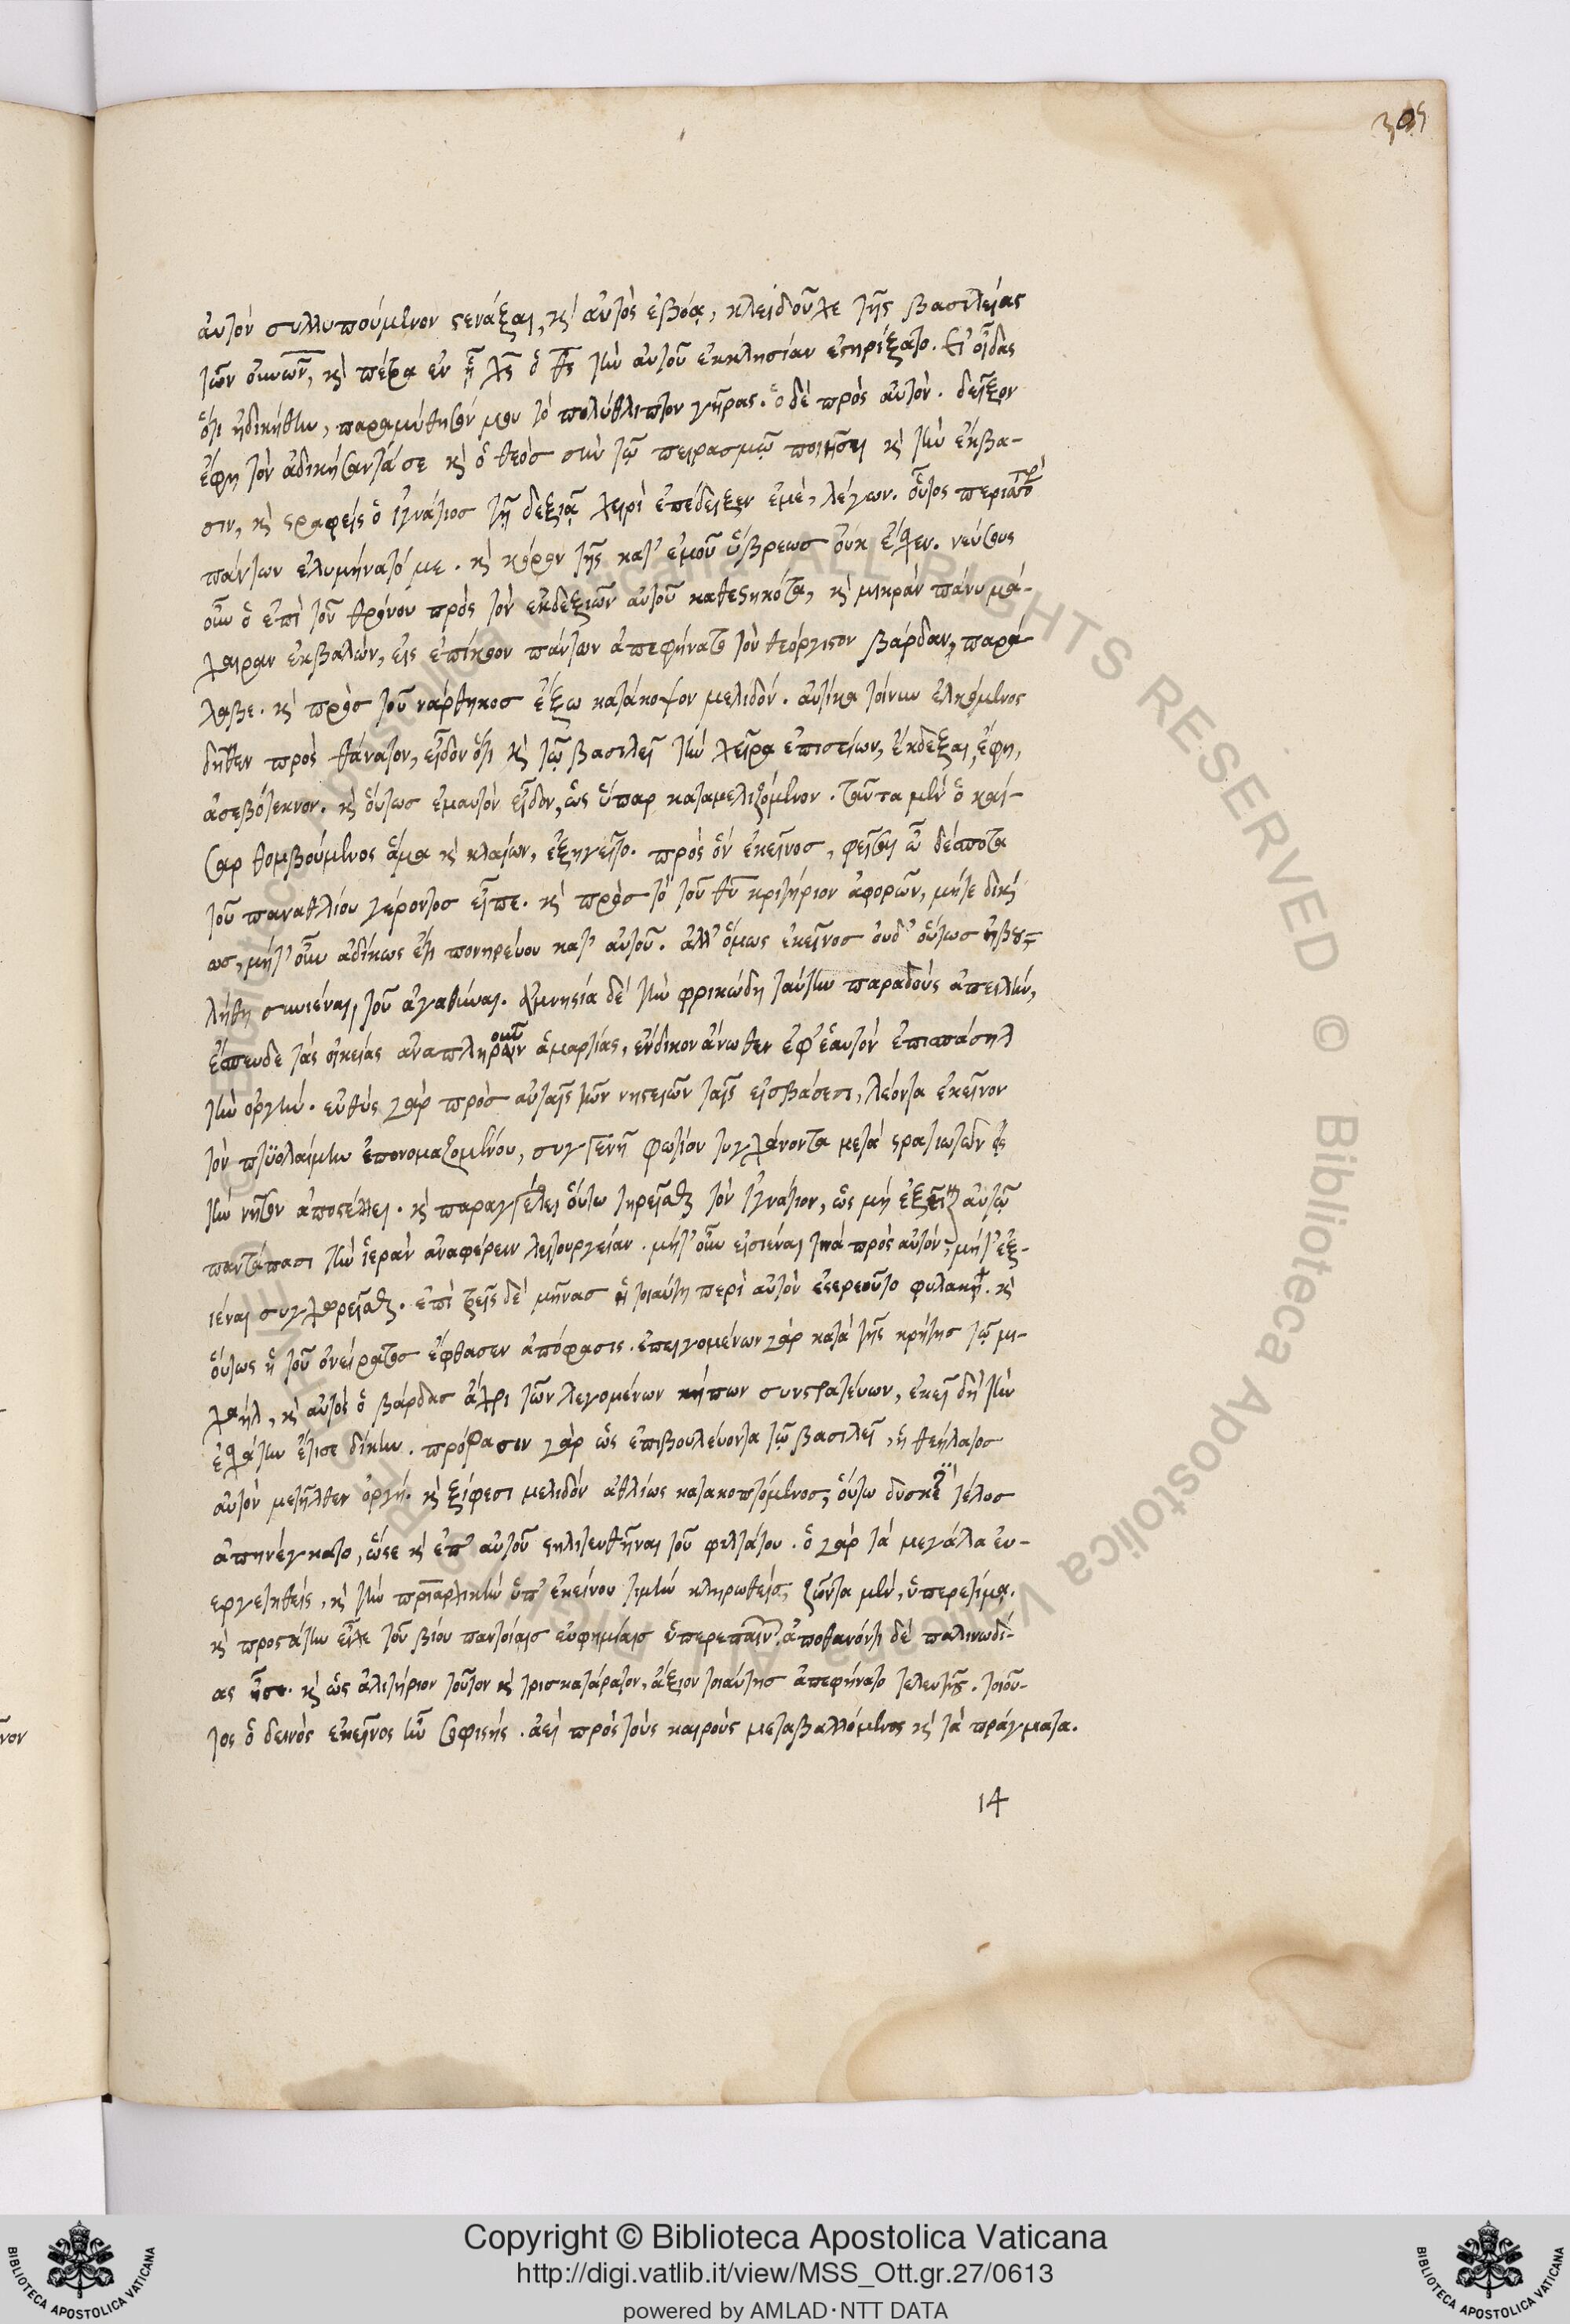 305
αὐτὸν συλλυπούμενον στενάξαι, κ αὐτὸς ἐβόα, κλειδοῦχε τῆς βασιλείας
τῶν οὐνῶν, κ πέτρα ἐν ᾗ χς ὁ θς τὴν αὐτοῦ ἐκκλησίαν ἐστηρίξατο. εἰ οἶδας
ὅτι ἠδικήθην, παραμύθησόν μου τὸ πολύθλιπτον γῆρας. ὁ δὲ πρὸς αὐτὸν. δεῖξον
ἔφη τὸν ἀδικήσαντά σε κ ὁ θεὸς σὺν τῷ πειρασμῷ ποιήσει κ τὴν ἔκβα-
σιν, κ στραφεὶς ὁ ἰγνάτιος τῇ δεξιᾷ χειρὶ ἐπέδειξεν ἐμὲ, λέγων. οὗτος περιττὸ
πάντων ἐλυμήνατό με. κ κόρον τῆς κατ' ἐμοῦ ὕβρεως οὐκ ἔσχεν. νεύσας
οὖν ὁ ἐπὶ τοῦ θρόνου πρὸς τὸν ἐκδεξιῶν αὐτοῦ καθεστηκότα, κ μικρὰν πάνυ μά-
χαιραν ἐκβαλὼν, εἰς ἐπήκοον πάντων ἀπεφήνατο τὸν θεόργιστον βάρδαν, παρά
λαβε. κ πρὸς τοῦ νάρθηκος ἔξω κατάκοψον μελιδόν. αὐτίκα τοίνυν ἑλκόμενος
δῆθεν πρὸς θάνατον, εἶδον ὅτι κ τῷ βασιλεῖ τὴν χεῖρα ἐπισείων, ἔκδεξαι, ἔφη,
ἀσεβότεκνον. κ οὕτως ἐμαυτὸν εἶδον, ὡς ὕπαρ καταμελιζόμενον. ταῦτα μὲν ὁ καί-
σαρ θομβούμενος ἅμα κ κλαίων, ἐξηγεῖτο. πρὸς ὃν ἐκεῖνος, φεῖσαι ὦ δέσποτα
τοῦ παναθλίου γέροντος εἶπε. κ πρὸς τὸ τοῦ θυ κριτήριον ἀφορῶν, μήτε δικαί
ως, μήτ' οὖν ἀδίκως ἔτι πονηρεύου κατ' αὐτοῦ. ἀλλ' ὅμως ἐκεῖνος οὐδ' οὕτως ἠβου-
λήθη συνιέναι, τοῦ ἀγαθύναι. ἀμνησία δὲ τὴν φρικώδη ταύτην παραδοὺς ἀπειλὴν,
ἔσπευδε τὰς οἰκείας ἀναπληρῶν ἁμαρτίας, ἔνδικον ἄνωθεν ἐφ' ἑαυτὸν ἐπισπάσηται
τὴν ὀργὴν. εὐθὺς γὰρ πρὸς αὐταῖς τῶν νηστειῶν ταῖς εἰσβάσεσι, λέοντα ἐκεῖνον
τὸν πτϋολαίμην ἐπονομαζομένου, συγγενῆ φωτίου τυγχάνοντα μετὰ στρατιωτῶν εἰς
τὴν νῆσον ἀποστέλλει. κ παραγγέλλει οὕτω τηρεῖσθαι τὸν ἰγνάτιον, ὡς μὴ ἐξεῖναι αὐτῷ
παντάπασι τὴν ἱερὰν ἀναφέρειν λειτουργείαν. μήτ' οὖν εἰσιέναι τινὰ πρὸς αὐτὸν, μήτ' ἐξ-
ιέναι συγχωρεῖσθαι. ἐπὶ τρεῖς δὲ μῆνας ἡ τοιαύτη περὶ αὐτὸν ἐστερεοῦτο φυλακή. κ
οὕτως ἡ τοῦ ὀνείρατος ἔφθασεν ἀπόφασις. ἐπειγομένων γὰρ κατὰ τῆς κρήτης τῷ μι-
χαὴλ, κ αὐτὸς ὁ βάρδας ἄχρι τῶν λεγομένων κήπων συνστρατεύων, ἐκεῖ δὴ τὴν
ἐσχάτην ἔτισε δίκην. πρόφασιν γὰρ ὡς ἐπιβουλεύοντα τῷ βασιλεῖ, ἡ θεήλατος
αὐτὸν μετῆλθεν ὀργή. κ ξίφεσι μελιδὸν ἀθλίως κατακοπτόμενος, οὕτω δυσκλεὲς τέλος
ἀπηνέγκατο, ὥστε κ ἐπ' αὐτοῦ στηλιτευθῆναι τοῦ φιλτάτου. ὁ γὰρ τὰ μεγάλα εὐ-
εργετηθεὶς, κ τὴν πριαρχικὴν ὑπ' ἐκείνου τιμὴν κληρωθεὶς, ζῶντα μὲν, ὑπερετίμα.
κ προστάτην εἶχε τοῦ βίου παντοίαις εὐφημίαις ὑπερεπαινῶν. ἀποθανόντι δὲ παλινωδί-
ας ᾖσε. κ ὡς ἀλιτήριον τοῦτον κ τρισκατάρατον, ἄξιον τοιαύτης ἀπεφήνατο τελευτῆς. τοιοῦ-
τος ὁ δεινὸς ἐκεῖνος ἦν σοφιστής. ἀεὶ πρὸς τοὺς καιροὺς μεταβαλλόμενος κ τὰ πράγματα.
14
Copyright © Biblioteca Apostolica Vaticana
http://digi.vatlib.it/view/MSS_Ott.gr.27/0613
powered by AMLAD·NTT DATA
BIBLIOTECA APOSTOLICA VATICANA
BIBLIOTECA APOSTOLICA VATICANA